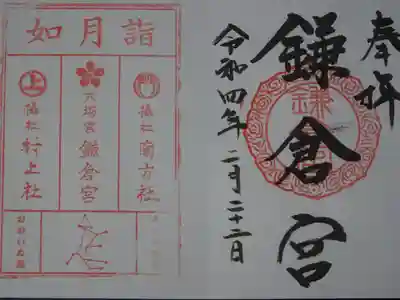 奉拝
鎌倉宮
令和四年二月二十二日
如月詣
摂社
南方社
大塔宮
鎌倉宮
摂社
村上社
上